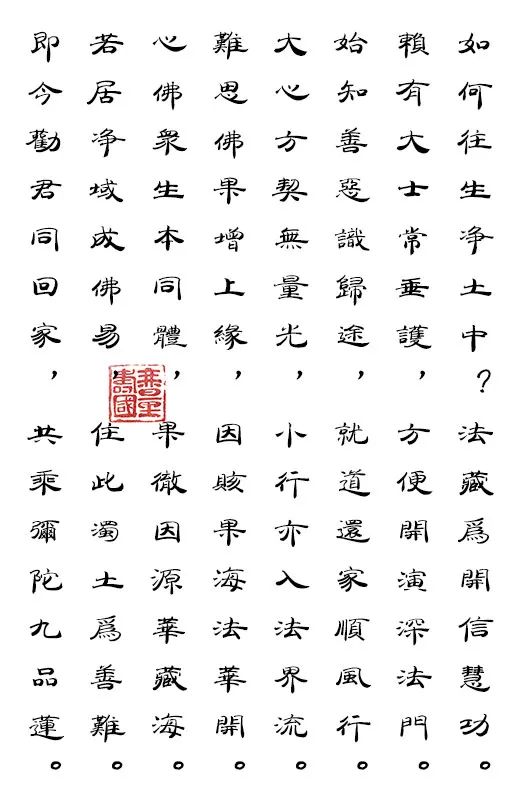 如何往生净土中?法藏爲開信慧功。
賴有大士常垂護,方便開演深法門。
始知善惡識歸途,就道還家順風行。
大心方契無量光,小行亦入法界流。
難思佛果增上緣,因賅果海法華開。
心佛衆生本同體,果徹因源華藏海。
若居净域成佛易,住此濁土爲善難。
即今勸君同回家,共乘彌陀九品蓮。